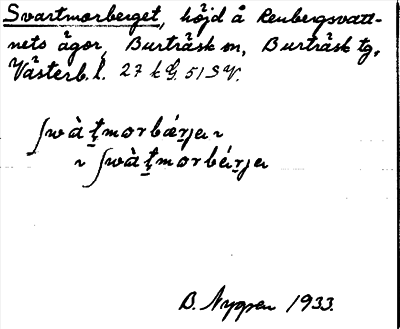 Svartmorberget, höjd å Renbergsvatt-
nets ägor, Burträsk sn, Burträsk tg,
Västerb. l. 27 k G. 51 S V.
ʃwàt̠morbær̠ja ~
~ ʃwàt̠morbár̠ja
B. Nygren 1933.